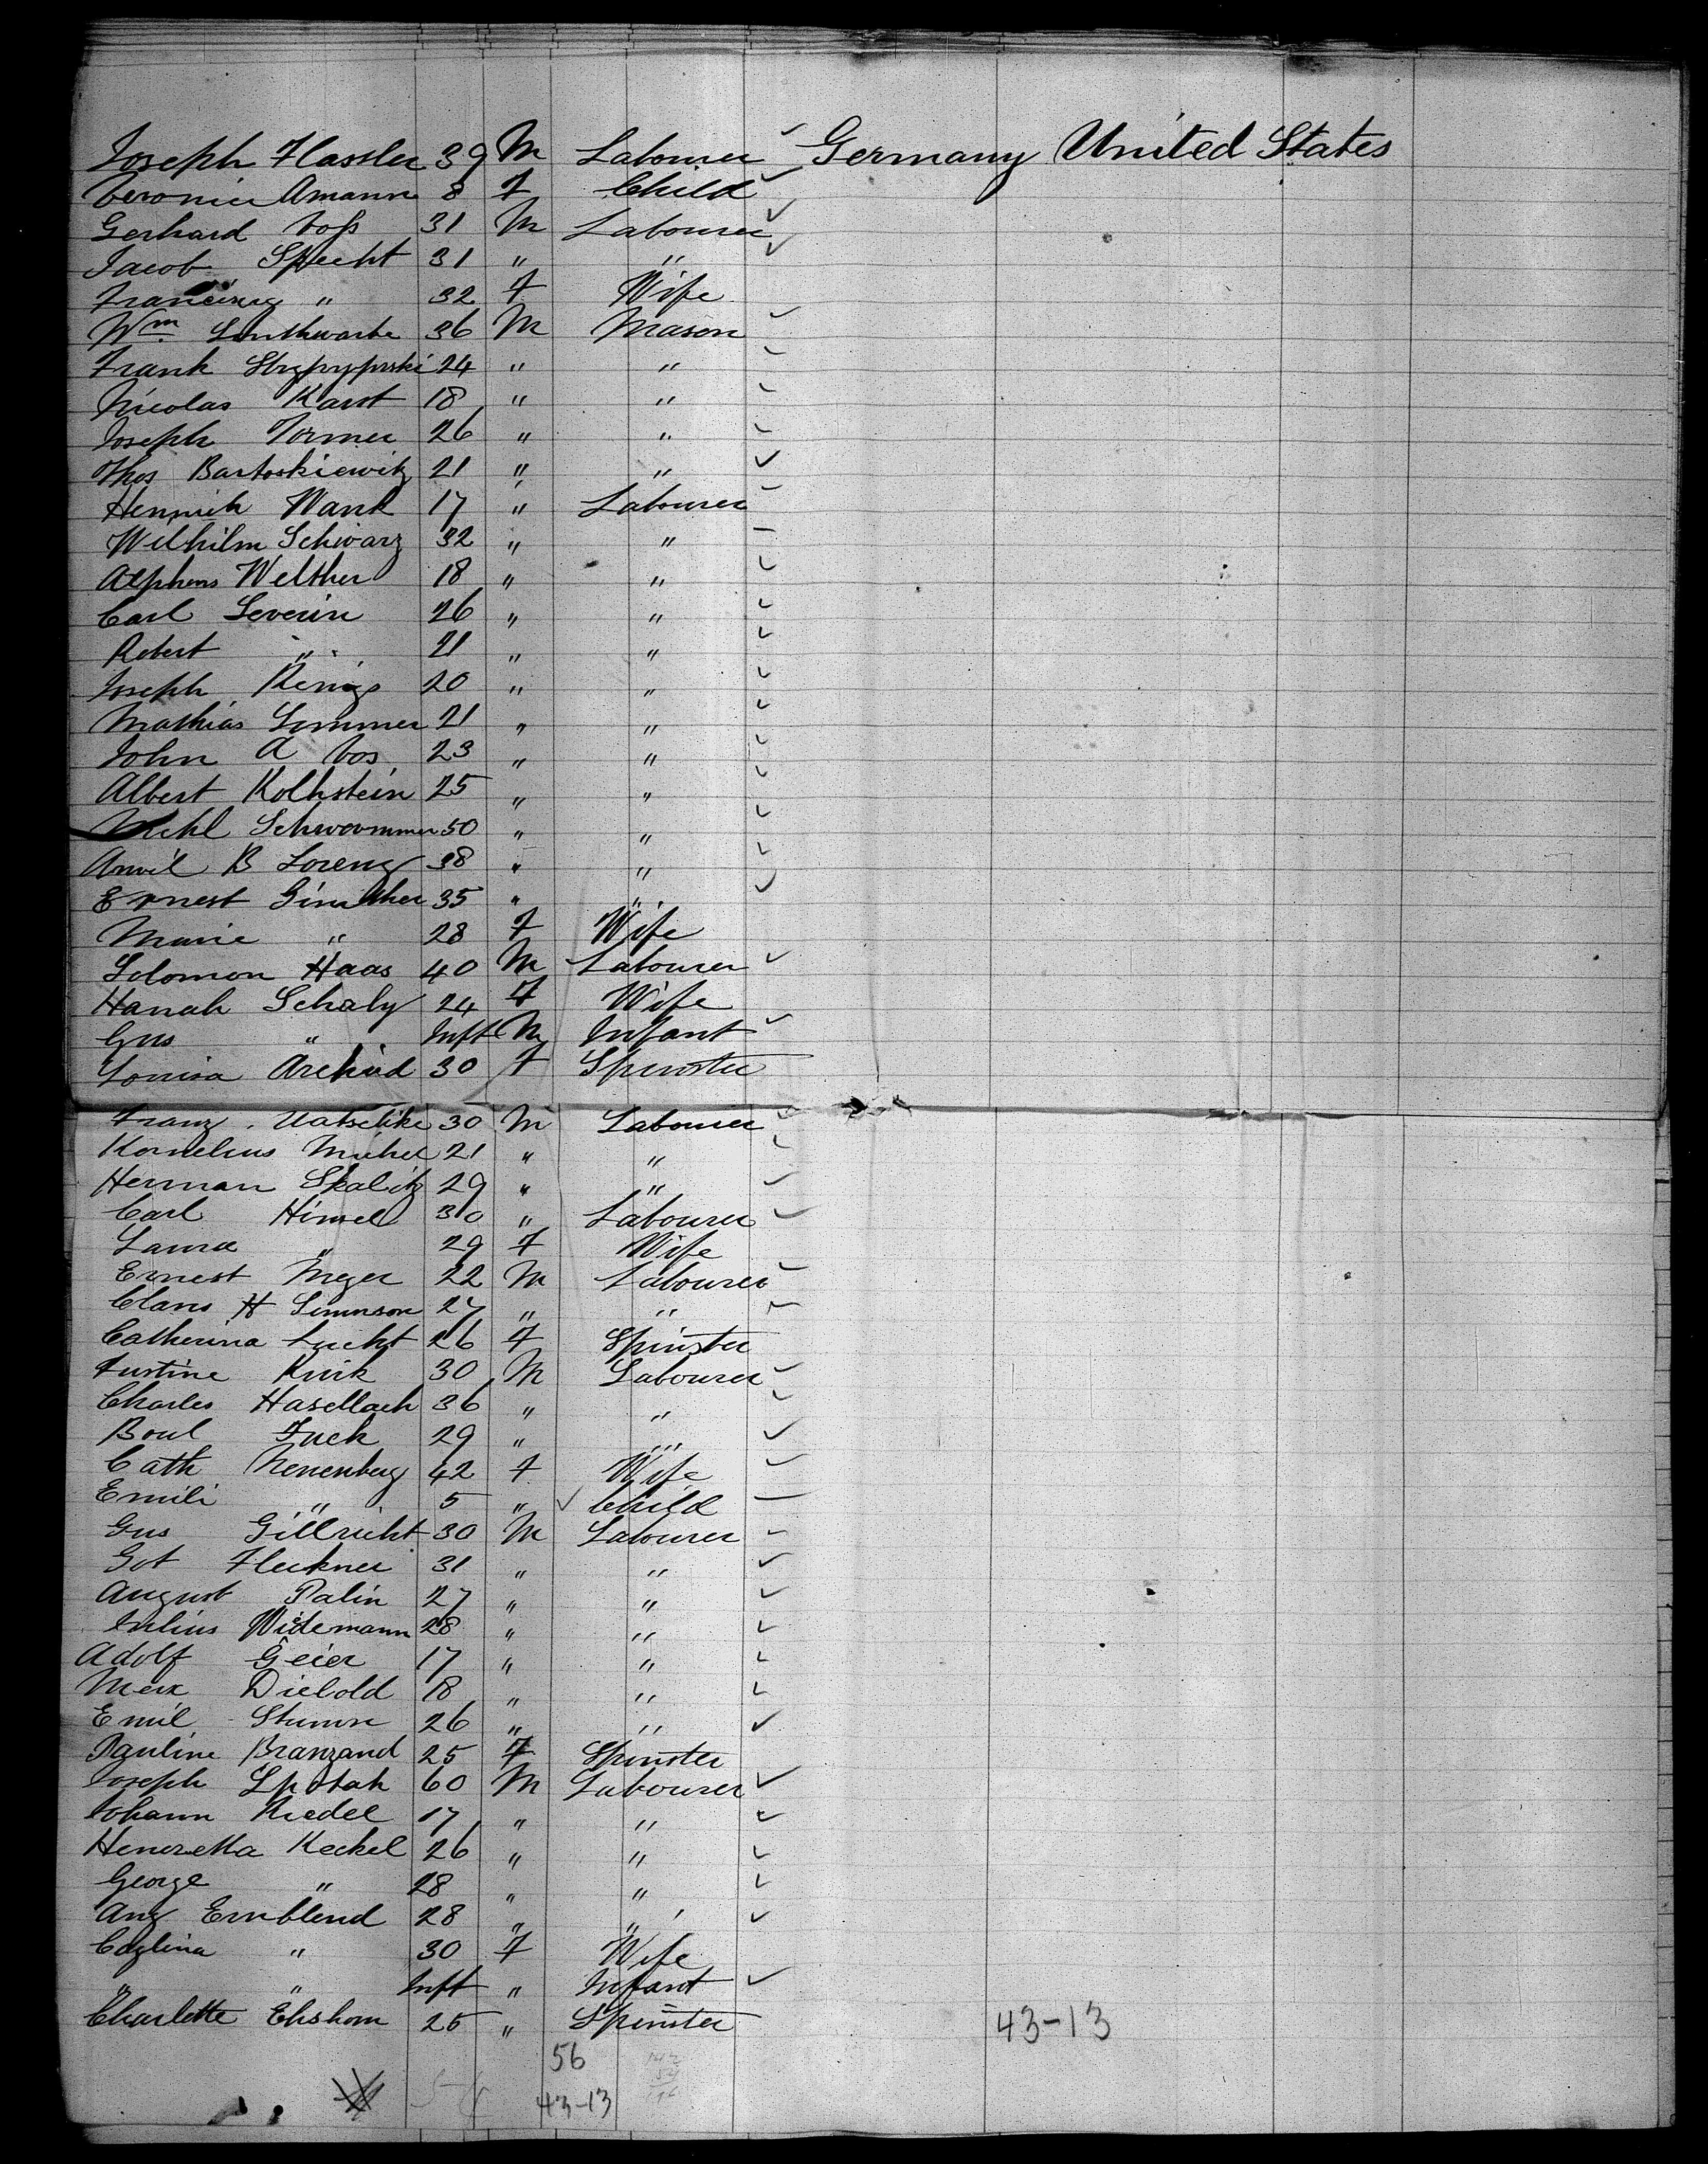 Joseph Hassler 39 M Labourer Germany United States
Veronica Amann 8 F Child
Gerhard Voſs 31 M Labourer
Jacob Specht 31 " "
" 32 F Wife
Wm. 36 M Mason
Frank 24 " "
Nicolas Karst 18 " "
Joseph Tormer 26 " "
Thos Bartoskiewitz 21 " "
Hennrich Wank 17 " Labourer
Wilhilm Schwarz 32 " "
Alphons Welther 18 " "
Carl Severin 26 " "
Robert " 21 " "
Joseph Rings 20 " "
Mathias Sommer 21 " "
John A Vos 23 " "
Albert Kolhstein 25 " "
Michl 50 " "
B Lorenz 38 " "
Ernest Ginsther 35 " "
Marie " 28 F Wife
Solomon Haas 40 M Labourer
Hanah Schaly 24 F Wife
Gus " Inft M Infant
Louisa 30 F Spinster
Franz 30 M Labourer
Kornelius Michel 21 " "
Herman Skalitz 29 " "
Carl Himsel 30 " Labourer
Laura " 29 F Wife
Ernest Meyer 22 M Labourer
Claus H Simmson 27 " "
Catherina Lucht 26 F Spinster
Justine Kwik 30 M Labourer
Charles Hasellach 36 " "
Boul Fuck 29 " "
Cath Nenenberg 42 F Wife
Emili " 5 " Child
Gus Gillricht 30 M Labourer
Got Fleckner 31 " "
August Palin 27 " "
Julius Widemann 28 " "
Adolf Geier 17 " "
Merx Diebold 18 " "
Emil Stumm 26 " "
Pauline Branzand 25 F Spinster
Joseph Spotak 60 M Labourer
Johann Riedel 17 " "
Heneretta Keckel 26 " "
George " 28 " "
Aug Ernblend 28 " "
Cazlina " 30 F Wife
" " Inft " Infant
Charlette Ehshom 25 " Spinster
43-13
56
43-13